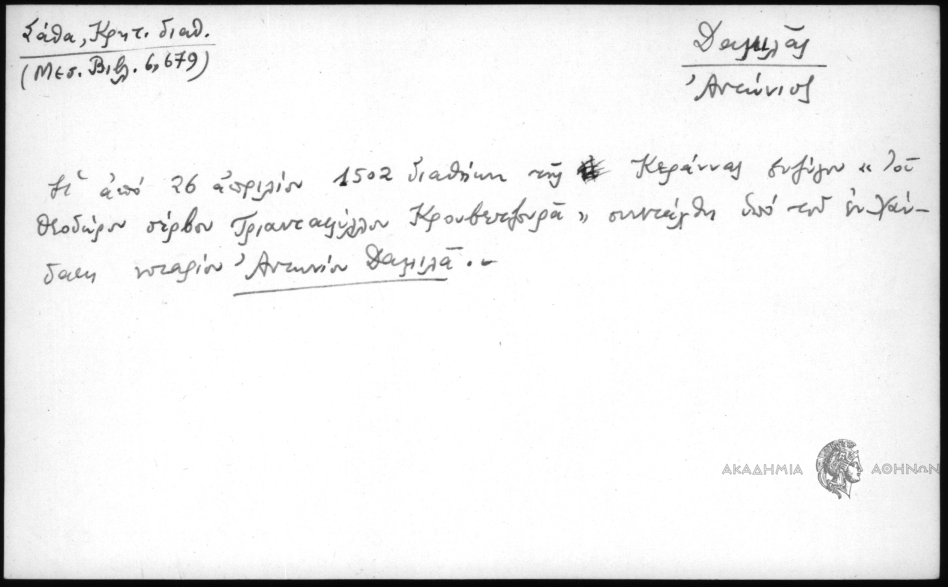 Σάθα, Κρητ. διαθ.
(Μεσ. Βιβλ. 6, 679)
Δαμιλᾶς
Ἀντώνιος
Ἡ ἀπό 26 ἀπριλίου 1502 διαθήκη τῆς Κεράννας συζύγου « τοῦ
Θεοδώρου σέρβου Τριανταφύλλου Κρουβετζουρᾶ » συνετάχθη ὑπό τοῦ ἐν Χάν-
δακι νοταρίου Ἀντωνίου Δαμιλᾶ . -
ΑΚΑΔΗΜΙΑ ΑΘΗΝΩΝ